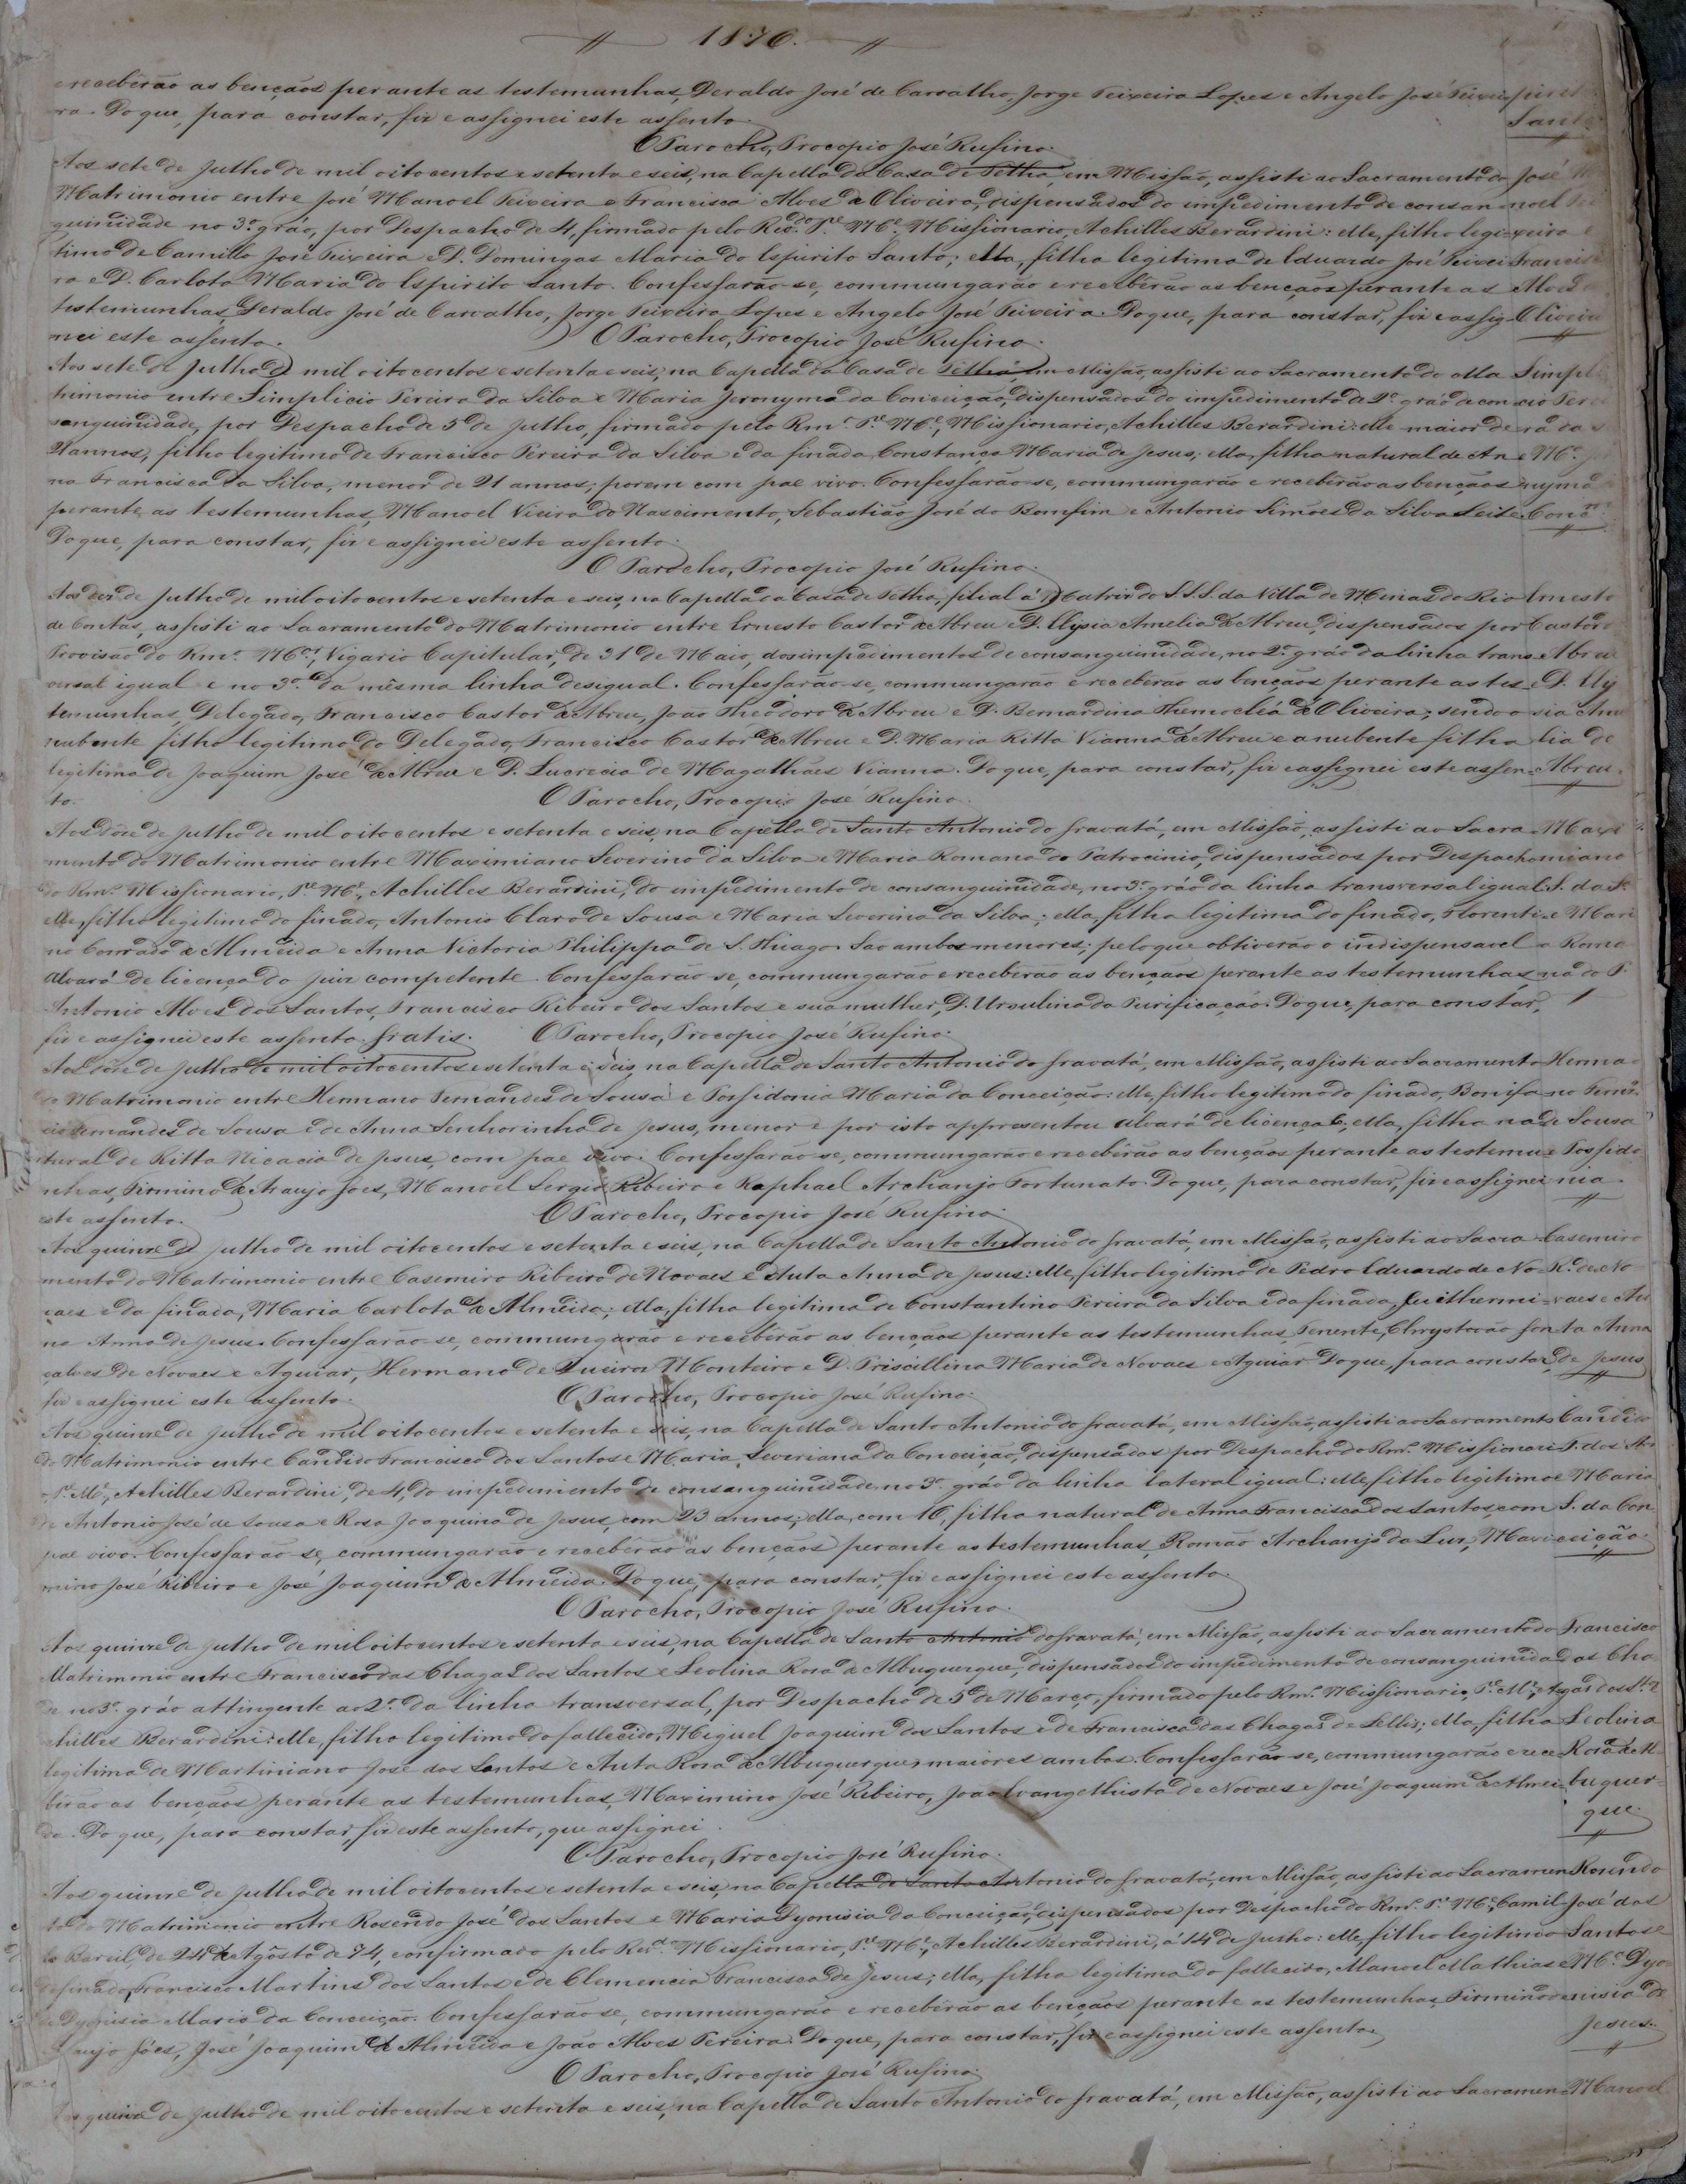 1876.
e receberão as bençãos perante as testemunhas, Deraldo José de Carvalho, Jorge Teixeira Lopes e Angelo José Teixei- pirito
ra. Do que, para constar, fiz e assignei este assento. Santo
O Parocho, Procopio José Rufino.
Aos sete de Julho de mil oitocentos e setenta e seis, na Capella da Casa de Telha, em Missão, assisti ao Sacramento do José
Matrimonio entre José Manoel Teixeira e Francisca Alves de Oliveira, dispensados do impedimento de consan- noel
guinidade no 3º gráo, por Despacho de 4, firmado pelo Revdo. Pe. Me. Missionario, Achilles Berardini: elle, filho legi- xeira e
timo de Camillo José Teixeira e D. Domingas Maria do Espirito Santo; ella, filha legitima de Eduardo José Teixei- Francisca
ra e D. Carlota Maria do Espirito Santo. Confessarão-se, commungarão e receberão as bençãos perante as Alves de
testemunhas, Geraldo José de Carvalho, Jorge Teixeira Lopes e Angelo José Teixeira. Do que, para constar, fiz e assig- Oliveira
nei este assento. O Parocho, Procopio José Rufino.
Aos sete de Julho de mil oitocentos e setenta e seis, na Capella da Casa de Telha, em Missão, assisti ao Sacramento do Ma- Simpli
trimonio entre Simplicio Pereira da Silva e Maria Jeronyma da Conceição, dispensados do impedimento de 2º gráo de con- cio Perei
sanguinidade, por Despacho de 5 de Julho, firmado pelo Rmº. Pe. Me., Missionario, Achilles Berardini: elle maior de ra da S.
21 annos, filho legitimo de Francisco Pereira da Silva e da finada Constança Maria de Jesus; ella, filha natural de An- e Mª. Je
na Francisca da Silva, menor de 21 annos; porem com pae vivo. Confessarão-se, commungarão e receberão as bençãos ronyma
perante as testemunhas, Manoel Vieira do Nascimento, Sebastião José do Bomfim e Antonio Simões da Silva Leite. Concm.
Do que, para constar, fiz e assignei este assento.
O Parocho, Procopio José Rufino.
Aos dez de Julho de mil oitocentos e setenta e seis, na Capella da Casa de Telha, filial á Matriz do S.S.S. da Villa de Minas do Rio Ernesto
de Contas, assisti ao Sacramento do Matrimonio entre Ernesto Castor de Abreu e D. Elysia Amelia de Abreu, dispensados por Castor
Provisão do Rmº. Mor., Vigario Capitular, de 31 de Maio, dos impedimentos de consanguinidade, no 2º gráo da linha trans- Abreu
versal igual e no 3º da mesma linha desigual. Confessarão-se, commungarão e receberão as bençãos perante as tes- e D. Ely
temunhas, Delegado, Francisco Castor de Abreu, João Theodoro de Abreu e D. Bernardina de Oliveira; sendo o sia Ame
nubente filho legitimo do Delegado, Francisco Castor de Abreu e D. Maria Ritta Vianna de Abreu e a nubente filha lia de
legitima de Joaquim José de Abreu e D. Lucrecia de Magalhães Vianna. Do que, para constar, fiz e assignei este assen- Abreu.
to. O Parocho, Procopio José Rufino.
Aos doze de Julho de mil oitocentos e setenta e seis, na Capella de Santo Antonio do Gravatá, em Missão, assisti ao Sacra- Maxi
mento do Matrimonio entre Maximiano Severino da Silva e Maria Romana do Patrocinio, dispensados por Despacho miano
do Rmº. Missionario, Pe. Me., Achilles Berardini, do impedimento de consanguinidade, no 3º gráo da linha transversal igual: S. da Sª
elle, filho legitimo do finado, Antonio Claro de Sousa e Maria Severina da Silva; ella, filha legitima do finado, Florenti- e Mari
no Conrado de Almeida e Anna Victoria Philippa de S. Thiago. São ambos menores; pelo que obtiverão o indispensavel a Roma
alvará de licença do Juiz competente. Confessarão-se, commungarão e receberão as bençãos perante as testemunhas na do P.
Antonio Alves dos Santos, Francisco Ribeiro dos Santos e sua mulher, D. Ursulina da Purificação. Do que, para constar,
fiz e assignei este assento. Gratis. O Parocho, Procopio José Rufino.
Aos doze de Julho de mil oitocentos e setenta e seis, na Capella de Santo Antonio do Gravatá, em Missão, assisti ao Sacramento Herma-
do Matrimonio entre Hermano Fernandes de Sousa e Possidonia Maria da Conceição: elle, filho legitimo do finado, Bonifa- no Ferndes.
cio Fernandes de Sousa e de Anna Senhorinha de Jesus, menor e por isto appresentou alvará de licença; ella, filha na- de Sousa
tural de Ritta Nicacia de Jesus, com pae vivo. Confessarão-se, commungarão e receberão as bençãos perante as testemu- e Possido
nhas, Firmino de Araujo Góes, Manoel Sergio Ribeiro e Raphael Archanjo Fortunato. Do que, para constar, fiz e assignei nia.
este assento. O Parocho, Procopio José Rufino.
Aos quinze de Julho de mil oitocentos e setenta e seis, na Capella de Santo Antonio do Gravatá, em Missão, assisti ao Sacra- Casemiro
mento do Matrimonio entre Casemiro Ribeiro de Novaes e Auta Anna de Jesus: elle, filho legitimo de Pedro Eduardo de No- R. de No
vaes e da finada, Maria Carlota de Almeida; ella, filha legitima de Constantino Pereira da Silva e da finada, Guilhermi- vaes e Au
na Anna de Jesus. Confessarão-se, commungarão e receberão as bençãos perante as testemunhas, Tenente, Chrystovão Gon- ta Anna
çalves de Novaes e Aguiar, Hermano de Monteiro e D. Priscillina Maria de Novaes e Aguiar. Do que, para constar, de Jesus
fiz e assignei este assento. O Parocho, Procopio José Rufino.
Aos quinze de Julho de mil oitocentos e setenta e seis, na Capella de Santo Antonio do Gravatá, em Missão, assisti ao Sacramento Candido
do Matrimonio entre Candido Francisco dos Santos e Maria Severiana da Conceição, dispensados por Despacho do Rmº. Missionario F. dos Stos
Pe. Me., Achilles Berardini, de 4, do impedimento de consanguinidade no 3º gráo da linha lateral igual: elle, filho legitimo e Maria
de Antonio José de Sousa e Rosa Joaquina de Jesus, com 23 annos; ella, com 16, filha natural de Anna Francisca dos Santos, com S. da Con
pae vivo. Confessarão-se, commungarão e receberão as bençãos perante as testemunhas, Romão Archanjo da Luz, Maxi- ceição.
mino José Ribeiro e José Joaquim de Almeida. Do que, para constar, fiz e assignei este assento.
O Parocho, Procopio José Rufino.
Aos quinze de Julho de mil oitocentos e setenta e seis, na Capella de Santo Antonio do Gravatá, em Missão, assisti ao Sacramento do Francisco
Matrimonio entre Francisco das Chagas dos Santos e Leolina Rosa de Albuquerque, dispensados do impedimento de consanguinida- das Cha-
de no 3º gráo attingente ao 2º da linha transversal, por Despacho de 5 de Março, firmado pelo Rmº. Missionario, Pe. Me., A- gas dos Stos e
chilles Berardini: elle, filho legitimo do fallecido, Miguel Joaquim dos Santos e de Francisca das Chagas de Lellis; ella, filha Leolina
legitima de Martiniano José dos Santos e Auta Rosa de Albuquerque; maiores ambos. Confessarão-se, commungarão e rece- Rosa de Al-
berão as bençãos perante as testemunhas, Maximino José Ribeiro, João Evangelhista de Novaes e José Joaquim de Almei- buquer-
da. Do que, para constar, fiz este assento, que assignei. que.
O Parocho, Procopio José Rufino.
Aos quinze de Julho de mil oitocentos e setenta e seis, na Capella de Santo Antonio do Gravatá, em Missão, assisti ao Sacramen- Rosendo
to do Matrimonio entre Rosendo José dos Santos e Maria Dyonisia da Conceição, dispensados por Despacho do Rmº. Pe. Me., Camil- José dos
lo de 24 de Agôsto de 74, confirmado pelo Revdo. Missionario, Pe. Me., Achilles Berardini, á 14 de Julho: elle, filho legitimo Santos e
do finado, Francisco Martins dos Santos e de Clemencia Francisca de Jesus; ella, filha legitima do fallecido, Manoel Mathias e Mª. Dyo-
de Dyonisia Maria da Conceição. Confessarão-se, commungarão e receberão as bençãos perante as testemunhas, Firmino de nisia de
Araujo Góes, José Joaquim de Almeida e João Alves Pereira. Do que, para constar, fiz e assignei este assento. Jesus.
O Parocho, Procopio José Rufino.
Aos quinze de Julho de mil oitocentos e setenta e seis, na Capella de Santo Antonio do Gravatá, em Missão, assisti ao Sacramen- Manoel